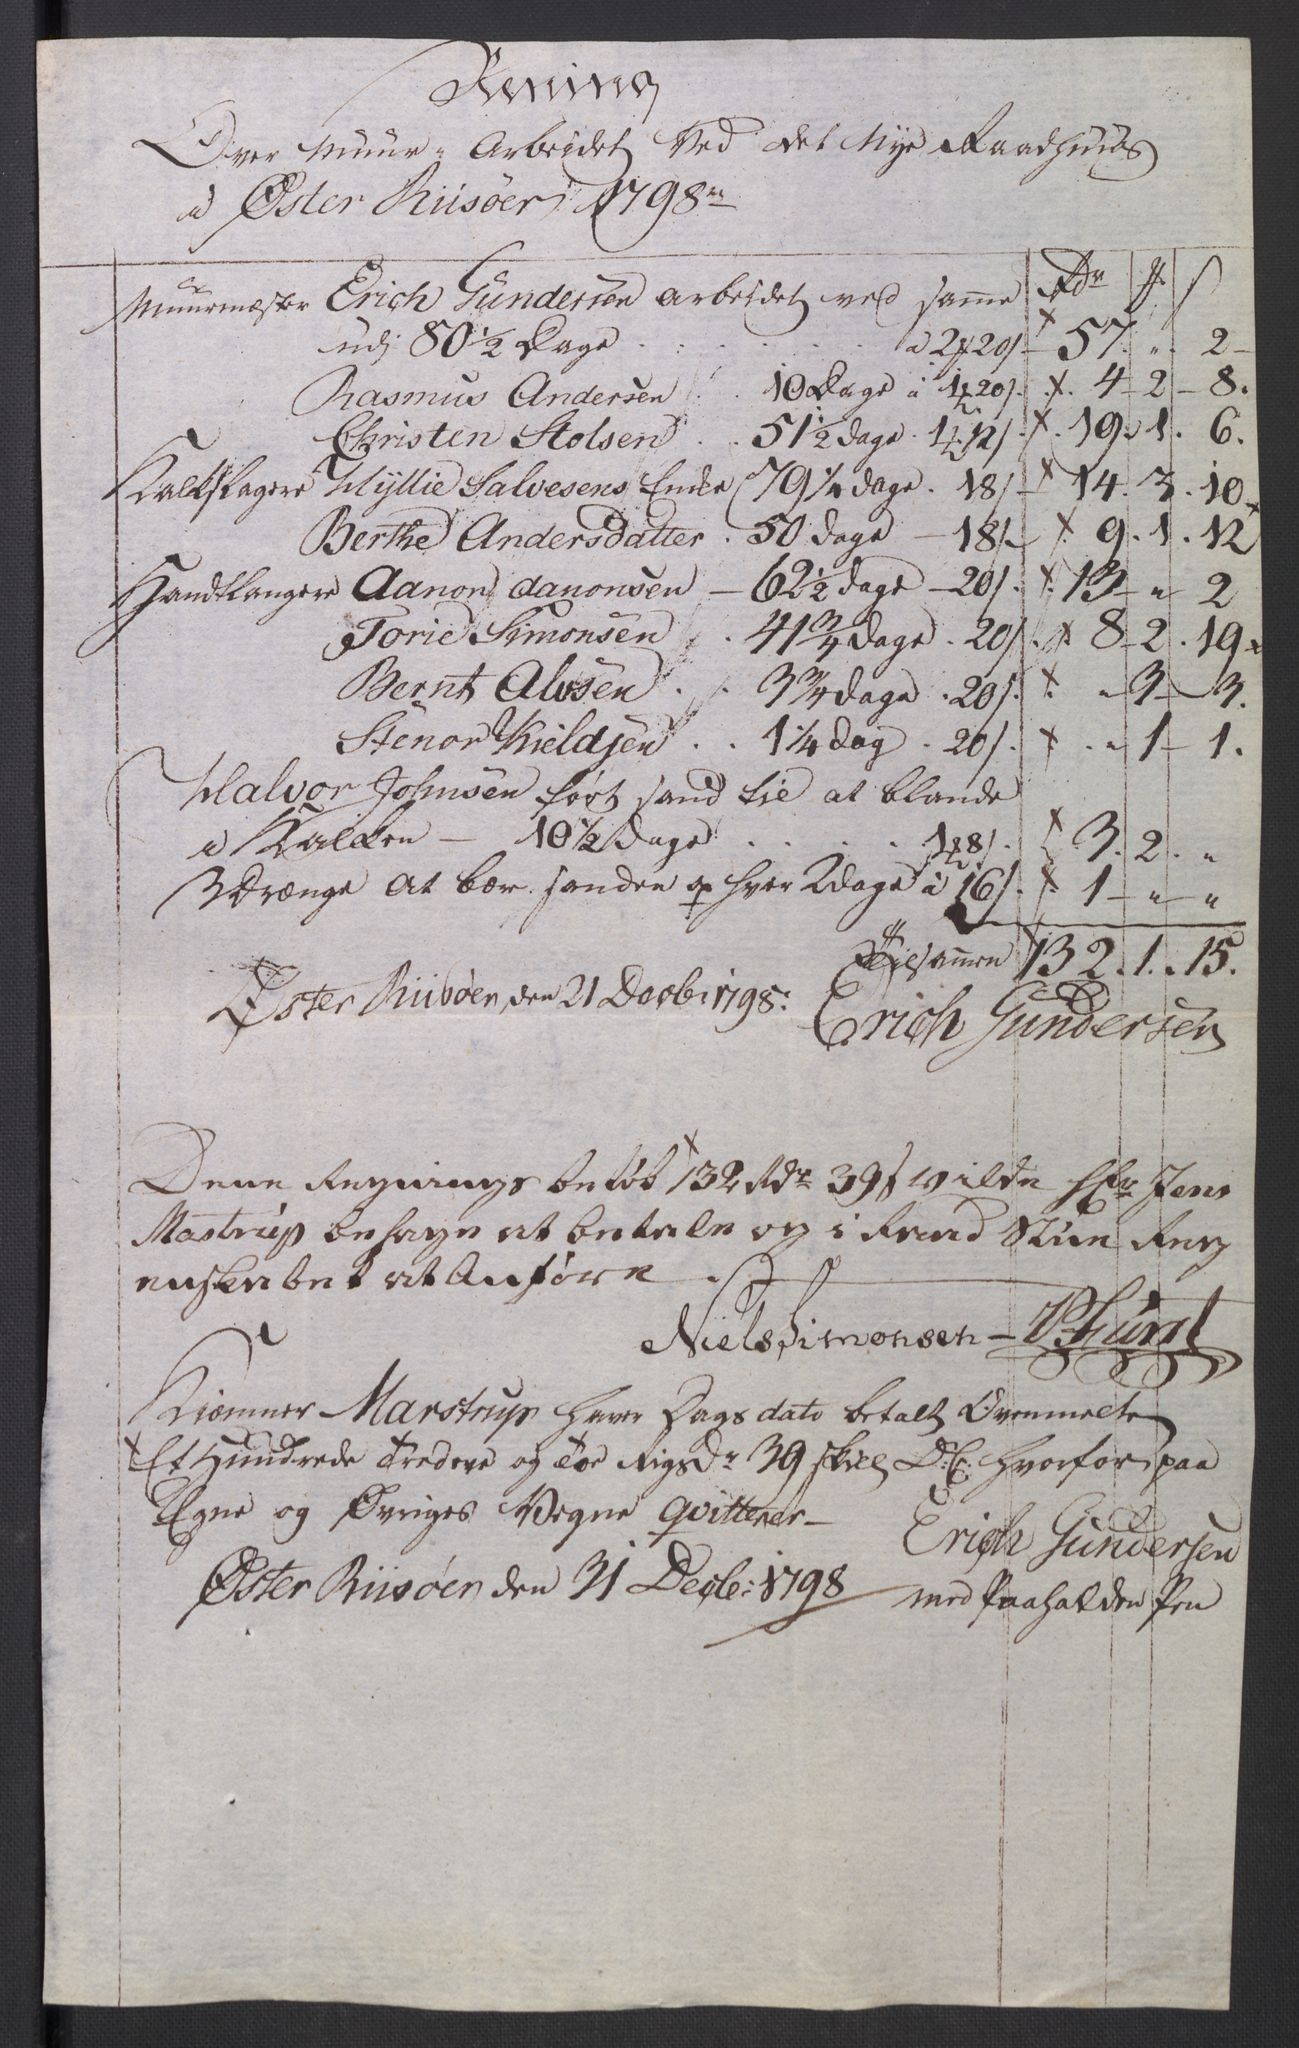 Regning
Over Muur-Arbeidet Ved det Nye Raadhuus
i Øster Riisøer 1798
Rdr # s
Muurmæster Erich Gundersen arbeidet ved samme
udj 80 1/2 Dage . . . . . a 2# 20s - 57 " 2 -
Rasmus Andersen . 10 Dage a 1# 20s. 4 - 2 - 8.
Christen Stolsen . . 51 1/2 dage . 1# 12s . 19 . 1 . 6.
Kalkslagere Hyllie Salvesens Enke 79 1/4 dage . 18s - 14 . 3 . 10
Berthe Andersdatter . 50 dage - 18s. 9 . 1 . 12
Handtlangere Aanon Aanonsen - 62 1/2 dage - 20s. 13 - " 2
Torie Simonsen . 41 3/4 dage . 20s. 8 - 2 . 19
Bernt Alvsen . . 3 3/4 dage . 20s. " 3 - 3.
Stenor Kieldsen . . 1 1/4 dag . 20s. " 1 - 1.
Halvor Johnsen ført sand til at blande
i Kalken - 10 1/2 dage . . . . 1# 8s. 3. 2. "
3 drænge at bær sanden hver 2 dage a 16s. 1 - " - "
Tilsammen 132 . 1 . 15.
Øster Riisøer, den 21 Decbr: 1798.
Erich Gundersen
Denne Regnings beløb 132 Rdr 39 s wilde Hr Jens
Mastrup behage at betale og i Raad Stue Reg
enskabet at Anføre .
Niels Simonsen - Furst
Kiemner Marstrup haver Dags dato betalt Ovenmelte
Et Hundrede tredeve og toe Rigsdr 39 skill D: C: hvorfor paa
Egne og Øvriges Vegne qvitterer -
Øster Riisøer den 31 Decbr: 1798
Erich Gundersen
med Paaholden Pen